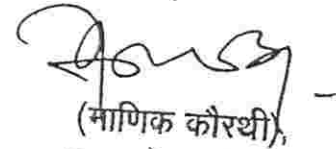 (माणिक कौरथी),